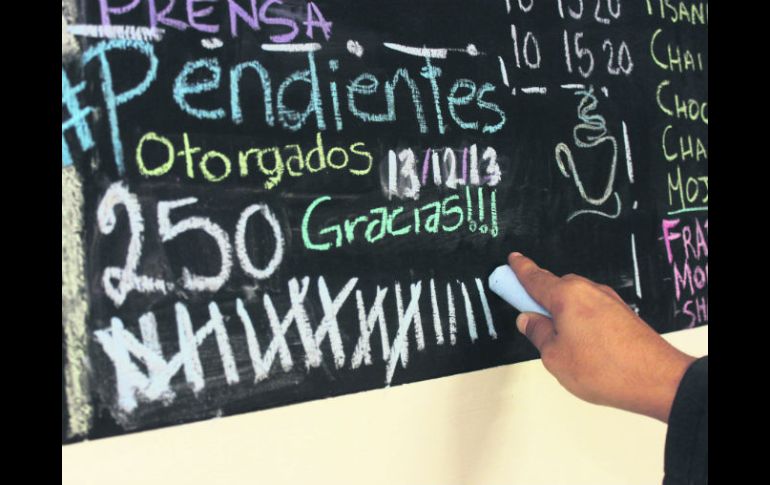 PRENSA
#Pendientes
Otorgados 13/12/13
250 Gracias!!!
10 15 20
10 15 20
CHAI
CHOC
CHA
MOJ
FRA
MO
SH